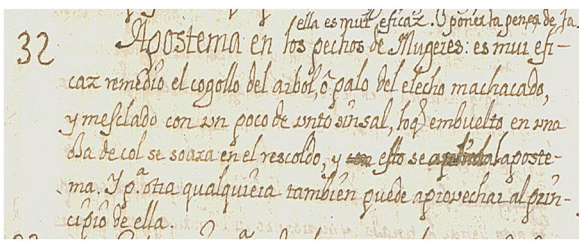 ella es mui eficaz. U poner la penca de
32 Apostema en los pechos de Mugeres: es mui efi-
caz remedio el cogollo del arbol, ò palo del elecho machacado,
y mesclado con un poco de unto sin sal, loq̃ embuelto en una
oJa de col se soaza en el rescoldo, y esto se aplica à la aposte-
ma. Y pª otra qualquiera tambien puede aprovechar al prin-
cipio de ella.